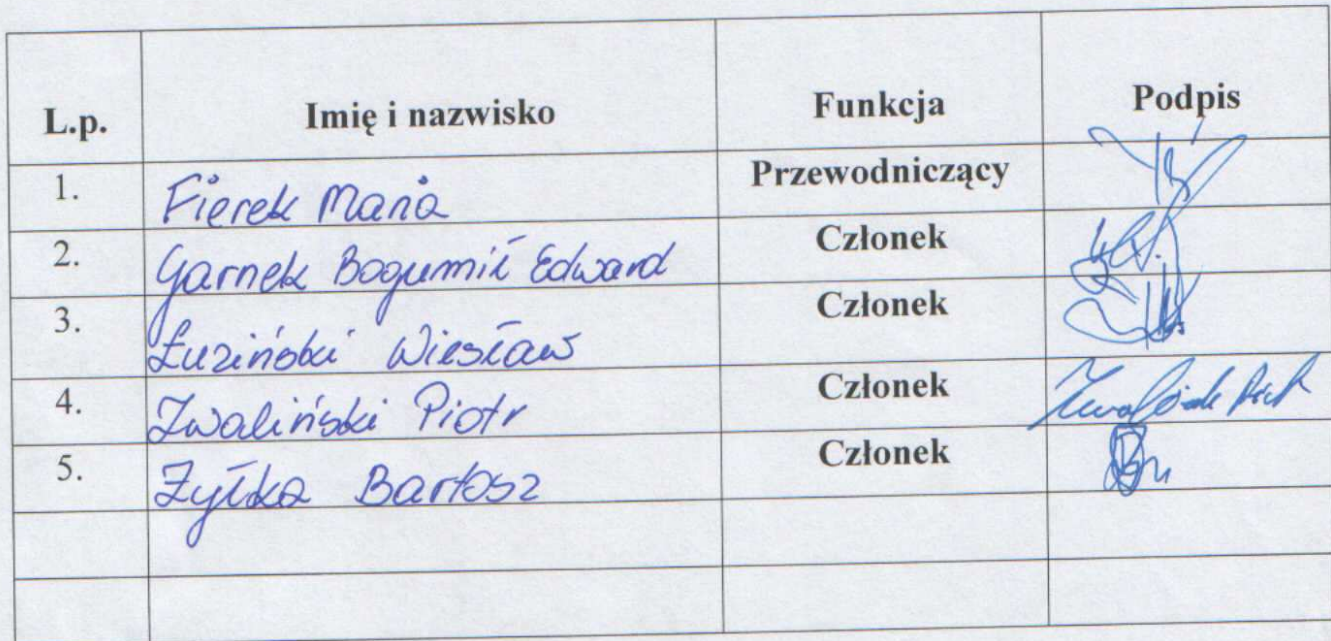 L.p. Imię i nazwisko Funkcja Podpis
1. Fierek Maria Przewodniczący
2. Garnek Bogumił Edward Członek
3. Łuziński Wiesław Członek
4. Zwaliński Piotr Członek
5. Zyłka Bartosz Członek